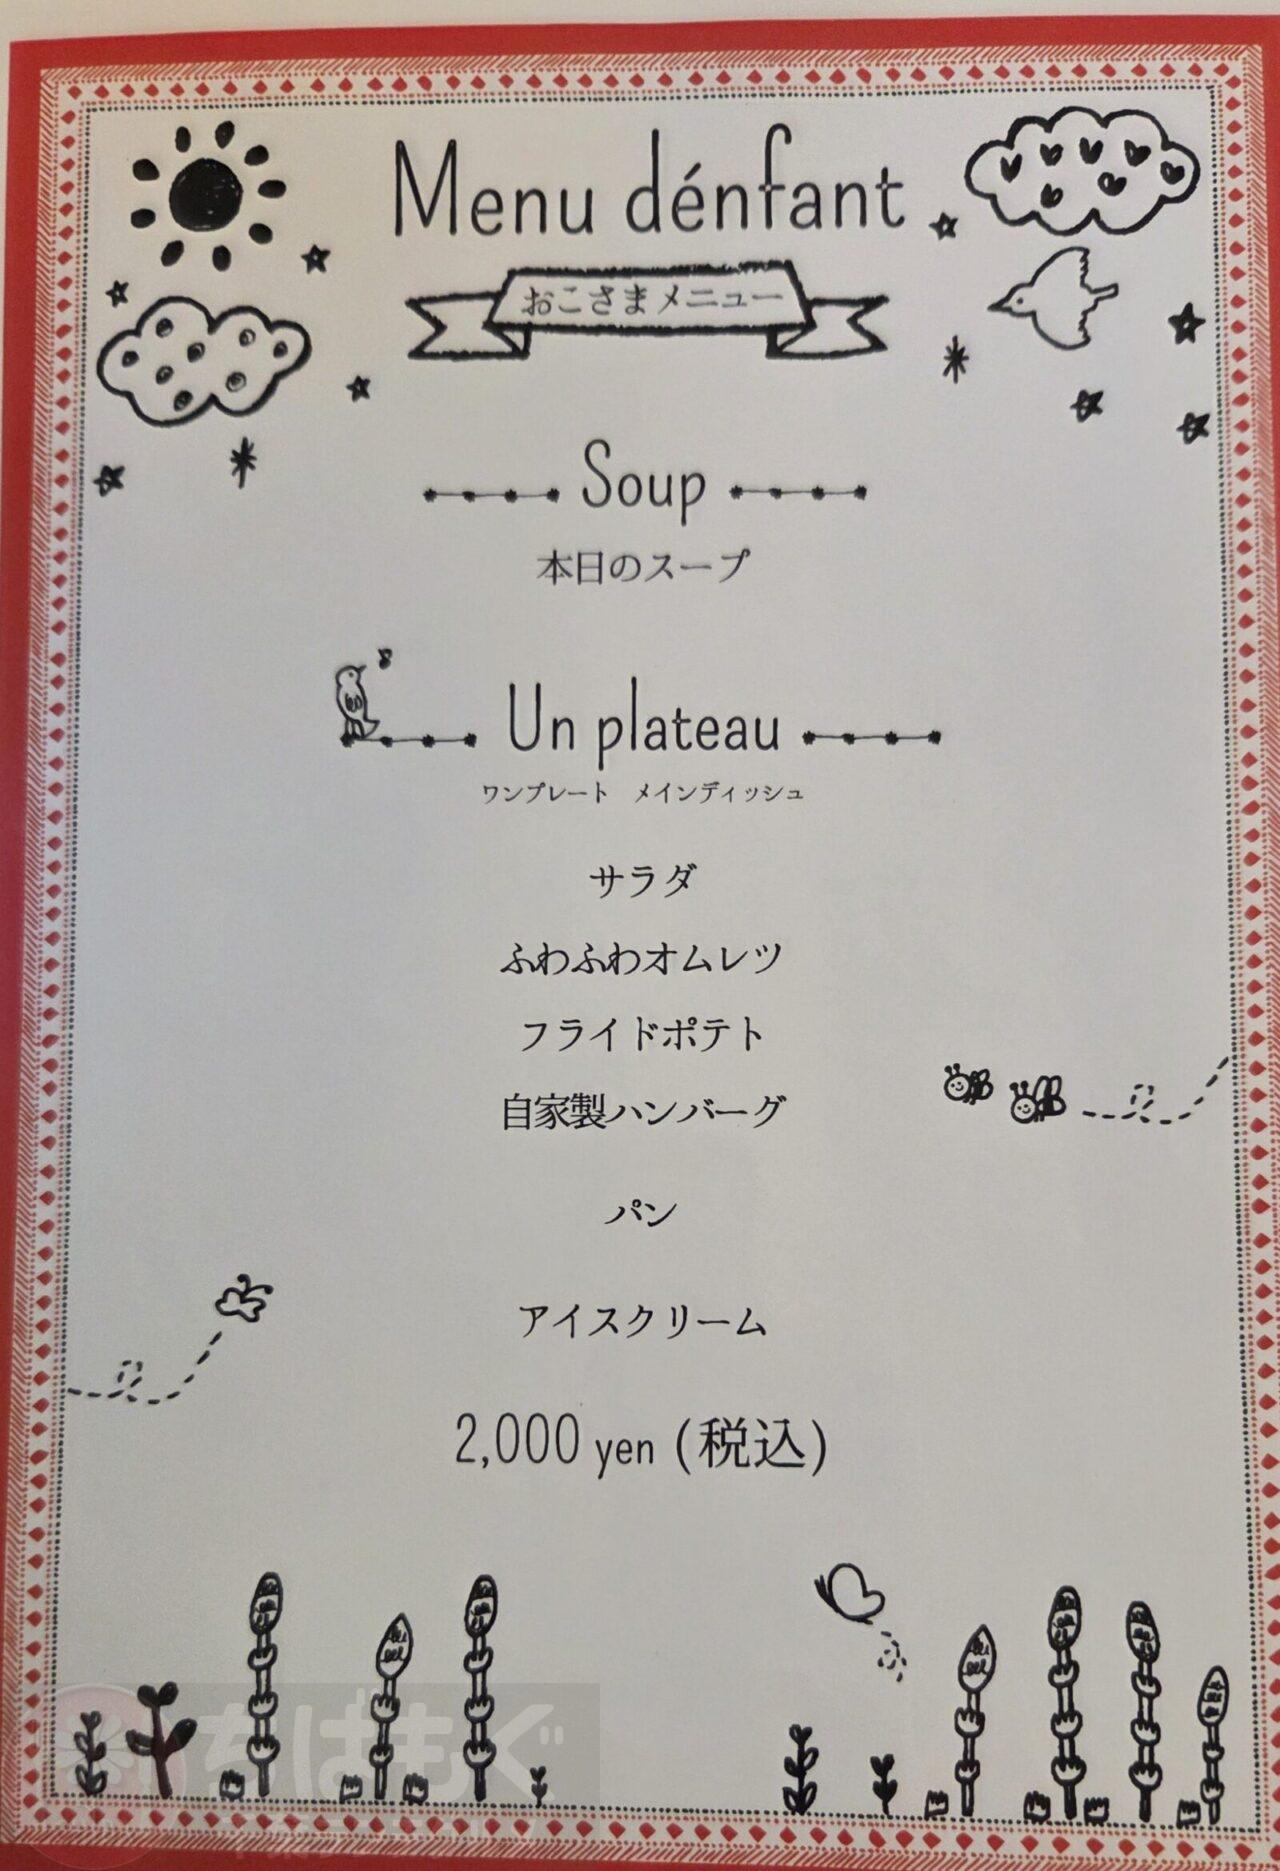 Menu dénfant
おこさまメニュー
Soup
本日のスープ
Un plateau
ワンプレート　メインディッシュ
サラダ
ふわふわオムレツ
フライドポテト
自家製ハンバーグ
パン
アイスクリーム
2,000 yen (税込)
ちばもぐ